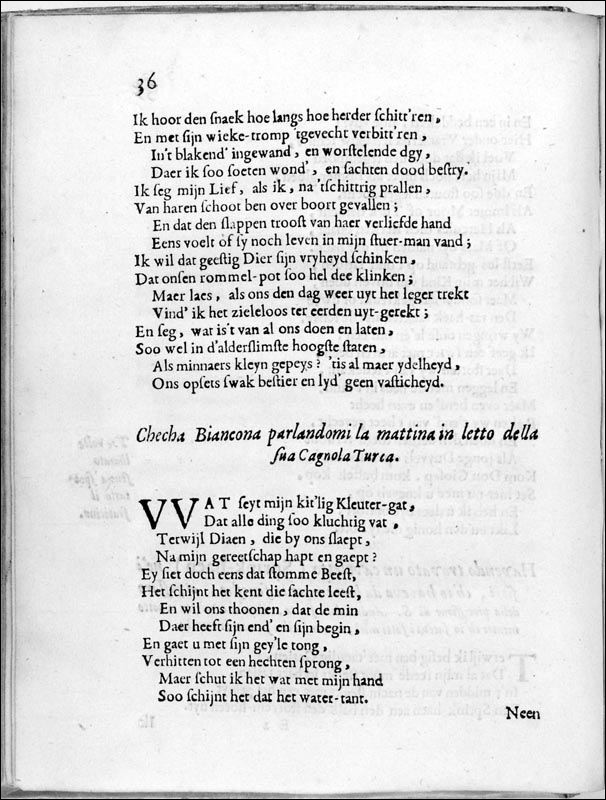 36
Ik hoor den snaek hoe langs hoe herder schitt'ren,
En met sijn wieke-tromp 'tgevecht verbitt'ren,
In't blakend' ingewand, en worstelende dgy,
Daer ik soo soeten wond', en sachten dood bestry.
Ik seg mijn Lief, als ik, na 'tschittrig prallen,
Van haren schoot ben over boort gevallen;
En dat den slappen troost van haer verliefde hand
Eens voelt of sy noch leven in mijn stuer-man vand;
Ik wil dat geestig Dier sijn vryheyd schinken,
Dat onsen rommel-pot soo hel dee klinken;
Maer laes, als ons den dag weer uyt het leger trekt
Vind' ik het zieleloos ter eerden uyt-gerekt;
En seg, wat is't van al ons doen en laten,
Soo wel in d'alderslimste hoogste staten,
Als minnaers kleyn gepeys? 'tis al maer ydelheyd,
Ons opsets swak bestier en lyd' geen vasticheyd.
Checha Biancona parlandomi la mattina in letto della
sua Cagnola Turca.
VVAT seyt mijn kit'lig Kleuter-gat,
Dat alle ding soo kluchtig vat,
Terwijl Diaen, die by ons slaept,
Na mijn gereetschap hapt en gaept?
Ey siet doch eens dat stomme Beest,
Het schijnt het kent die sachte leest,
En wil ons thoonen, dat de min
Daer heeft sijn end' en sijn begin,
En gaet u met sijn gey'le tong,
Verhitten tot een hechten sprong,
Maer schut ik het wat met mijn hand
Soo schijnt het dat het water-tant.
Neen